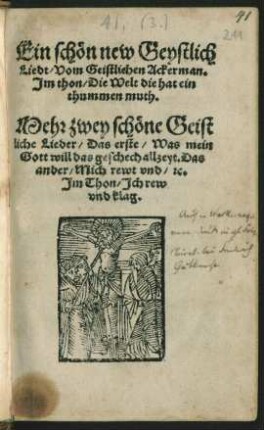 41, (3.)
41
211
Ein schön new Geystlich
Liedt / Vom Geistlichen Ackerman.
Im thon / Die Welt die hat ein
thummen muth.
Mehr zwey schöne Geist
liche Lieder / Das erste / Was mein
Gott will das geschech allzeyt. Das
ander / Mich rewt vnd / ꝛc.
Im Thon / Ich rew
vnd klag.